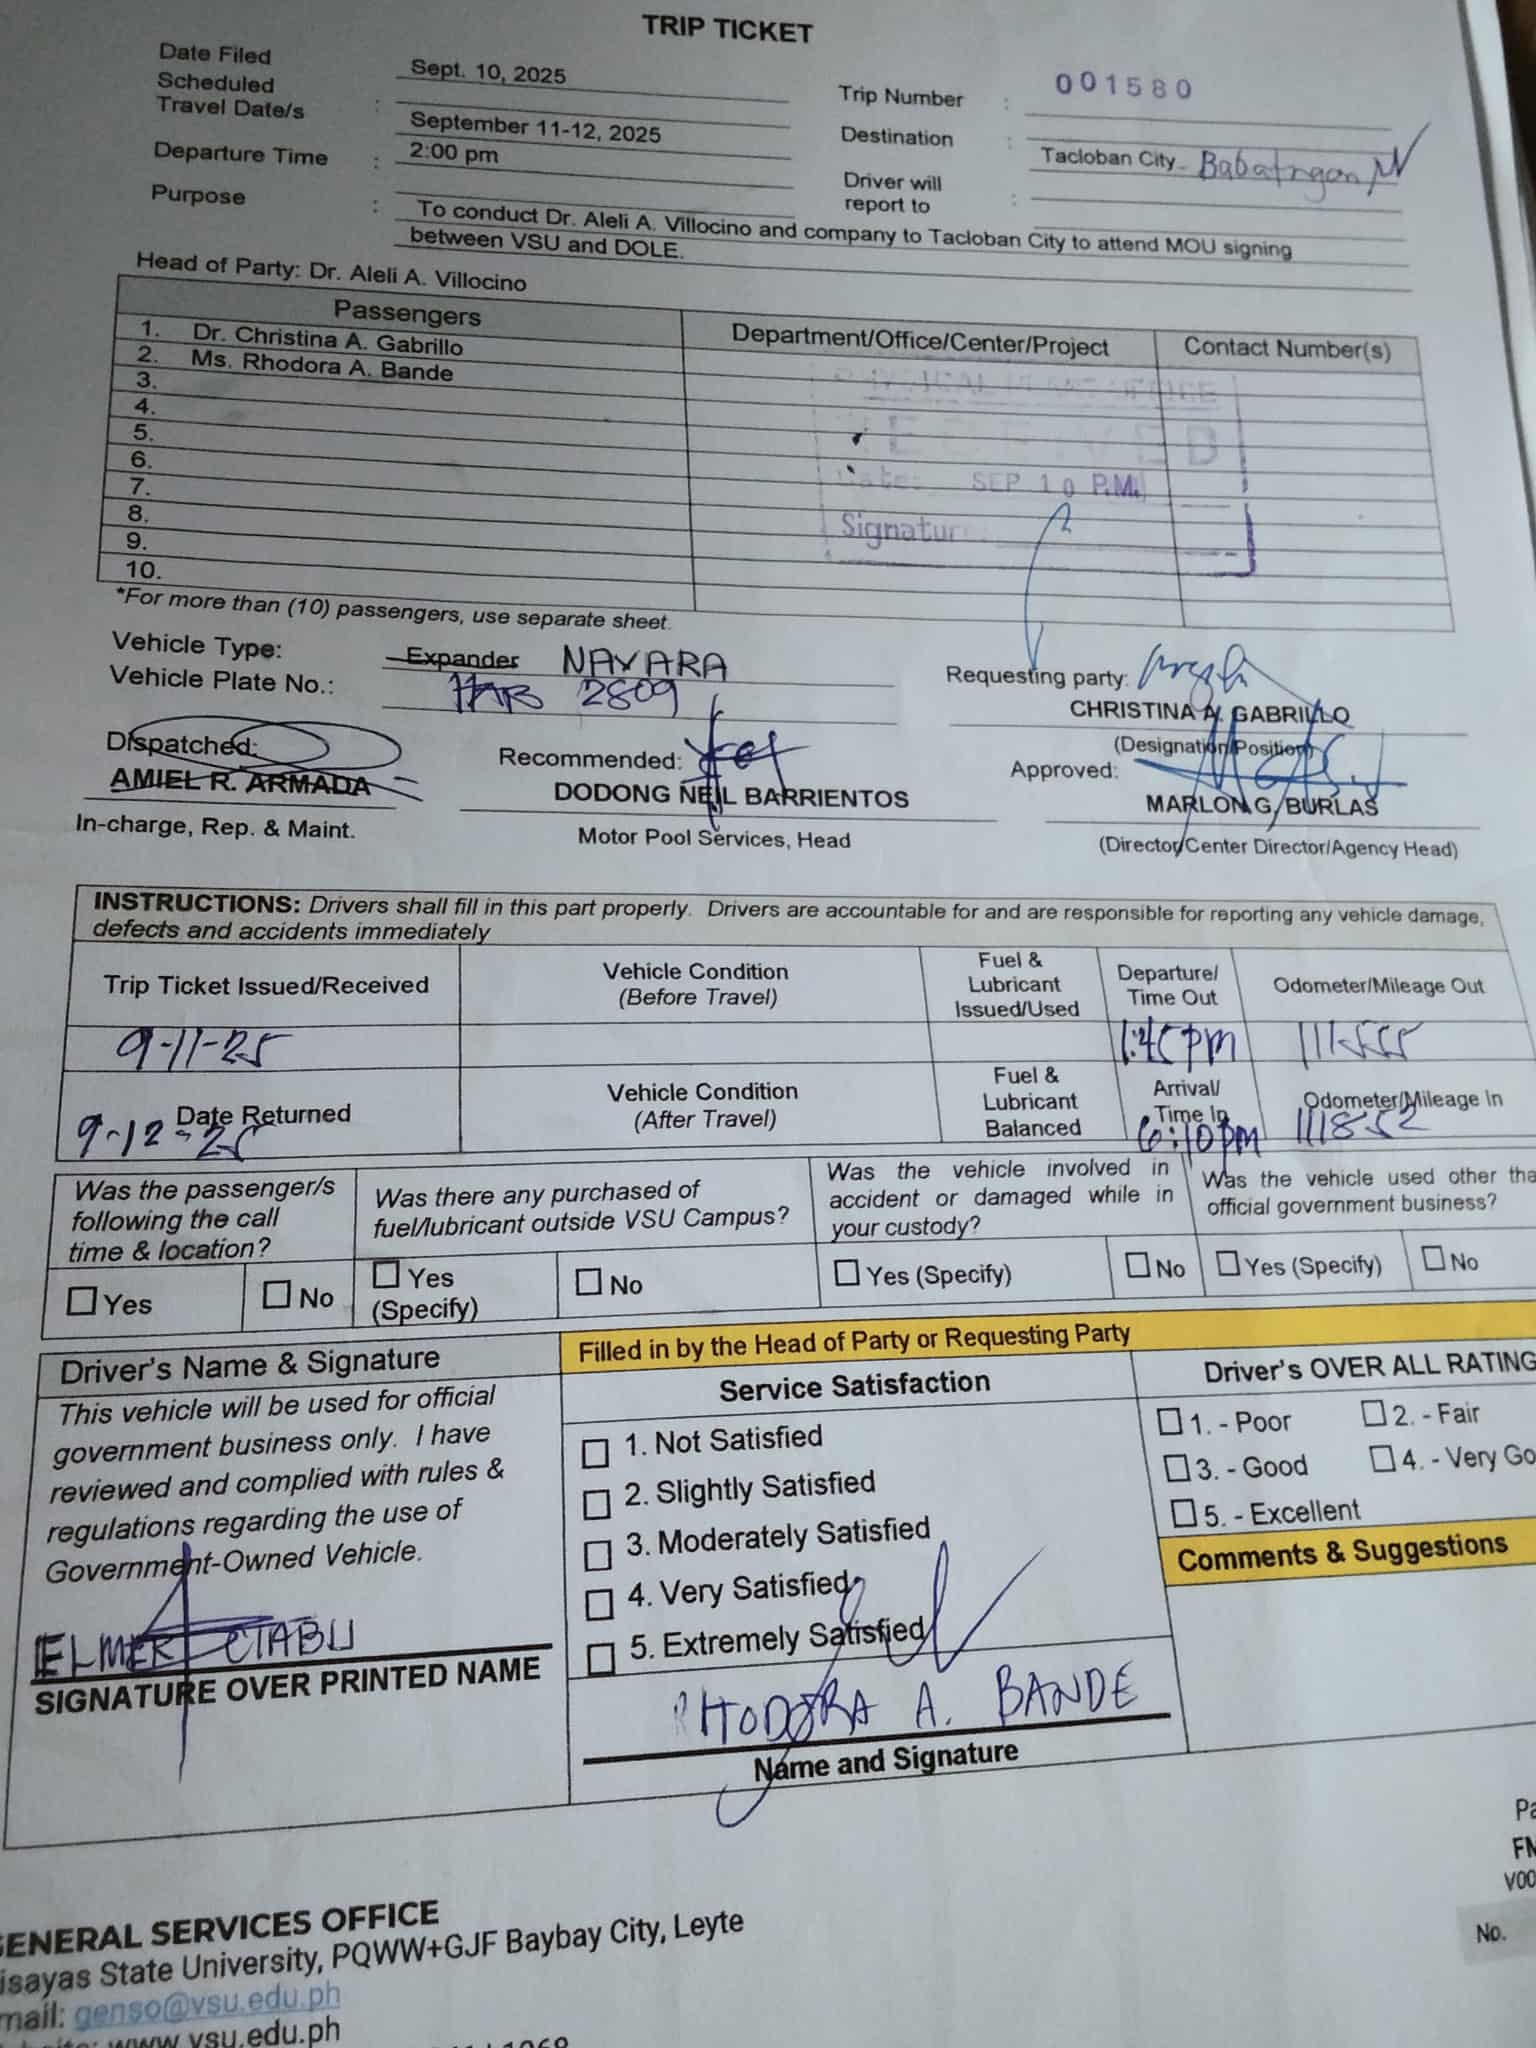 TRIP TICKET
Date Filed
Sept. 10, 2025
Scheduled
Travel Date/s : September 11-12, 2025
Departure Time : 2:00 pm
Trip Number : 001580
Destination : Tacloban City - Babatngon
Driver will
report to :
Purpose : To conduct Dr. Aleli A. Villocino and company to Tacloban City to attend MOU signing
between VSU and DOLE.
Head of Party: Dr. Aleli A. Villocino
Passengers Department/Office/Center/Project Contact Number(s)
1. Dr. Christina A. Gabrillo
2. Ms. Rhodora A. Bande
3.
4.
5.
6.
7.
8.
9.
10.
RECEIVED
Date: SEP 10 P.M.
Signatur
*For more than (10) passengers, use separate sheet.
Vehicle Type: Expander NAVARA
Vehicle Plate No.: 2809
Requesting party:
CHRISTINA A. GABRILLO
(Designation/Position)
Dispatched:
AMIEL R. ARMADA
In-charge, Rep. & Maint.
Recommended:
DODONG NEIL BARRIENTOS
Motor Pool Services, Head
Approved:
MARLON G. BURLAS
(Director/Center Director/Agency Head)
INSTRUCTIONS: Drivers shall fill in this part properly. Drivers are accountable for and are responsible for reporting any vehicle damage,
defects and accidents immediately
Trip Ticket Issued/Received
Vehicle Condition
(Before Travel)
Fuel &
Lubricant
Issued/Used
Departure/
Time Out
Odometer/Mileage Out
9-11-25
1:45 pm
111555
Date Returned
9-12-25
Vehicle Condition
(After Travel)
Fuel &
Lubricant
Balanced
Arrival/
Time In
6:10pm
Odometer/Mileage In
111852
Was the passenger/s
following the call
time & location?
Was there any purchased of
fuel/lubricant outside VSU Campus?
Was the vehicle involved in
accident or damaged while in
your custody?
Was the vehicle used other tha
official government business?
Yes
No
Yes
(Specify)
No
Yes (Specify)
No
Yes (Specify)
No
Driver's Name & Signature
This vehicle will be used for official
government business only. I have
reviewed and complied with rules &
regulations regarding the use of
Government-Owned Vehicle.
ELMER
SIGNATURE OVER PRINTED NAME
Filled in by the Head of Party or Requesting Party
Service Satisfaction
1. Not Satisfied
2. Slightly Satisfied
3. Moderately Satisfied
4. Very Satisfied
5. Extremely Satisfied
RHODORA A. BANDE
Name and Signature
Driver's OVER ALL RATING
1. - Poor
2. - Fair
3. - Good
4. - Very Go
5. - Excellent
Comments & Suggestions
Pa
FM
V00
No.
GENERAL SERVICES OFFICE
isayas State University, PQWW+GJF Baybay City, Leyte
mail: genso@vsu.edu.ph
www.vsu.edu.ph